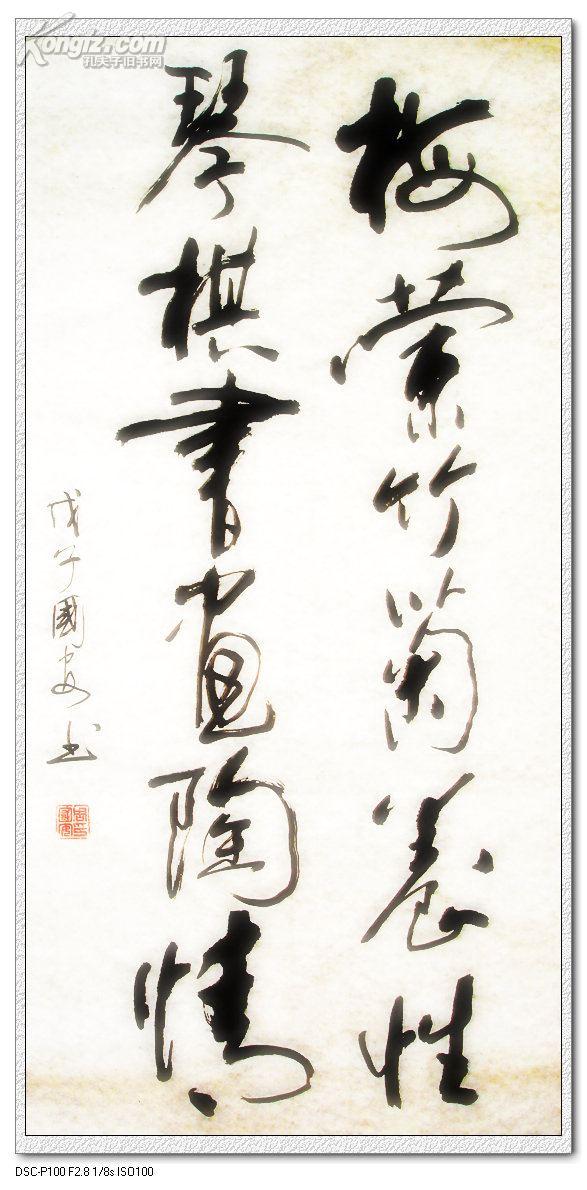 Kongfz.com
孔夫子旧书网
梅蘭竹菊養性
琴棋書畫陶情
戊子國安书
DSC-P100 F2.8 1/8s ISO100